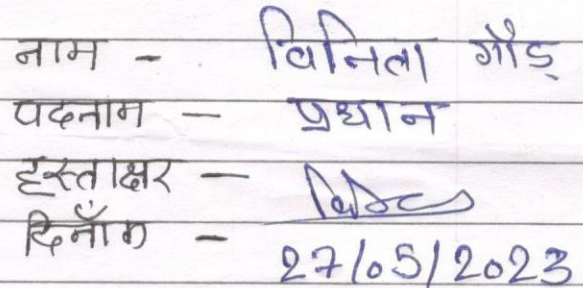 नाम - विनिता गौड़
पदनाम - प्रधान
हस्ताक्षर -
दिनाँक - 27/05/2023